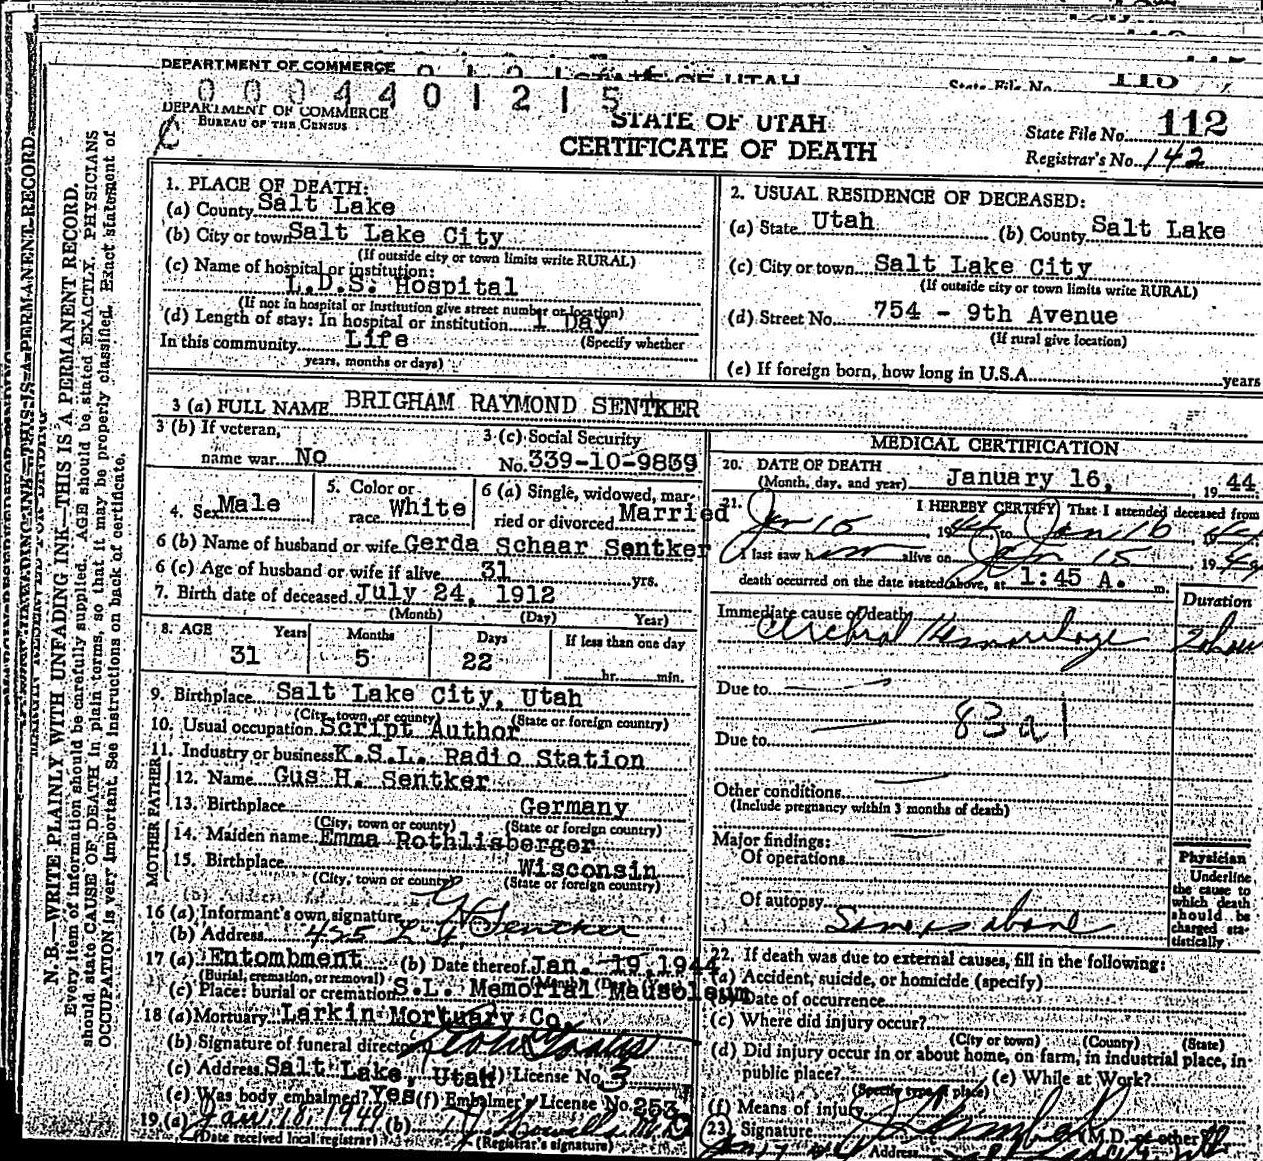 DEPARTMENT OF COMMERCE
STATE OF UTAH
State File No. 115
0004401215
DEPARTMENT OF COMMERCE
BUREAU OF THE CENSUS
STATE OF UTAH
CERTIFICATE OF DEATH
State File No. 112
Registrar's No. 142
N. B.—WRITE PLAINLY WITH UNFADING INK—THIS IS A PERMANENT RECORD.
Every item of information should be carefully supplied. AGE should be stated EXACTLY. PHYSICIANS
should state CAUSE OF DEATH in plain terms, so that it may be properly classified. Exact statement of
OCCUPATION is very important. See instructions on back of certificate.
1. PLACE OF DEATH:
(a) County Salt Lake
(b) City or town Salt Lake City
(If outside city or town limits write RURAL)
(c) Name of hospital or institution:
L.D.S. Hospital
(If not in hospital or institution give street number or location)
(d) Length of stay: In hospital or institution 1 Day
In this community Life (Specify whether
years, months or days)
2. USUAL RESIDENCE OF DECEASED:
(a) State Utah (b) County Salt Lake
(c) City or town Salt Lake City
(If outside city or town limits write RURAL)
(d) Street No. 754 - 9th Avenue
(If rural give location)
(e) If foreign born, how long in U.S.A. years
3 (a) FULL NAME BRIGHAM RAYMOND SENTKER
3 (b) If veteran,
name war No
3 (c) Social Security
No. 339-10-9839
4. Sex Male
5. Color or
race White
6 (a) Single, widowed, mar-
ried or divorced Married
6 (b) Name of husband or wife Gerda Schaar Sentker
6 (c) Age of husband or wife if alive 31 yrs.
7. Birth date of deceased July 24, 1912
(Month) (Day) Year)
8. AGE Years Months Days If less than one day
31 5 22 hr. min.
9. Birthplace Salt Lake City, Utah
(City, town, or county) (State or foreign country)
10. Usual occupation Script Author
11. Industry or business K.S.L. Radio Station
FATHER
12. Name Gus H. Sentker
13. Birthplace Germany
(City, town or county) (State or foreign country)
MOTHER
14. Maiden name Emma Rothlisberger
15. Birthplace Wisconsin
(City, town or county) (State or foreign country)
16 (a) Informant's own signature G H Sentker
(b) Address 425 L St
17 (a) Entombment (b) Date thereof Jan. 19, 1944
(Burial, cremation, or removal) (Month) (Day) (Year)
(c) Place: burial or cremation S.L. Memorial Mausoleum
18 (a) Mortuary Larkin Mortuary Co.
(b) Signature of funeral director
(c) Address Salt Lake, Utah (d) License No. 3
(e) Was body embalmed? Yes (f) Embalmer's License No. 253
19 (a) Jan. 18, 1944 (b)
(Date received local registrar) (Registrar's signature)
MEDICAL CERTIFICATION
20. DATE OF DEATH
(Month, day, and year) January 16, , 19 44
21. I HEREBY CERTIFY That I attended deceased from
Jan 15, 1944, to Jan 16, 1944
I last saw him alive on Jan 15, 1944
death occurred on the date stated above, at 1:45 A. m.
Duration
Immediate cause of death
Cerebral Hemorrhage
Due to
83a1
Due to
Other conditions
(Include pregnancy within 3 months of death)
Major findings:
Of operations
Of autopsy
Same as above
Physician
Underline
the cause to
which death
should be
charged sta-
tistically
22. If death was due to external causes, fill in the following:
(a) Accident, suicide, or homicide (specify)
(b) Date of occurrence
(c) Where did injury occur?
(City or town) (County) (State)
(d) Did injury occur in or about home, on farm, in industrial place, in
public place? (e) While at Work?
(Specify type of place)
(f) Means of injury
23. Signature (M.D. or other)
Address